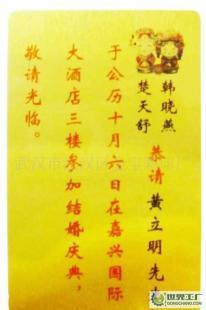 韩晓燕
楚天舒
恭请黄立明先生
于公历十月六日在嘉兴国际
大酒店三楼参加结婚庆典，
敬请光临。
世界工厂
GONGCHANG.COM